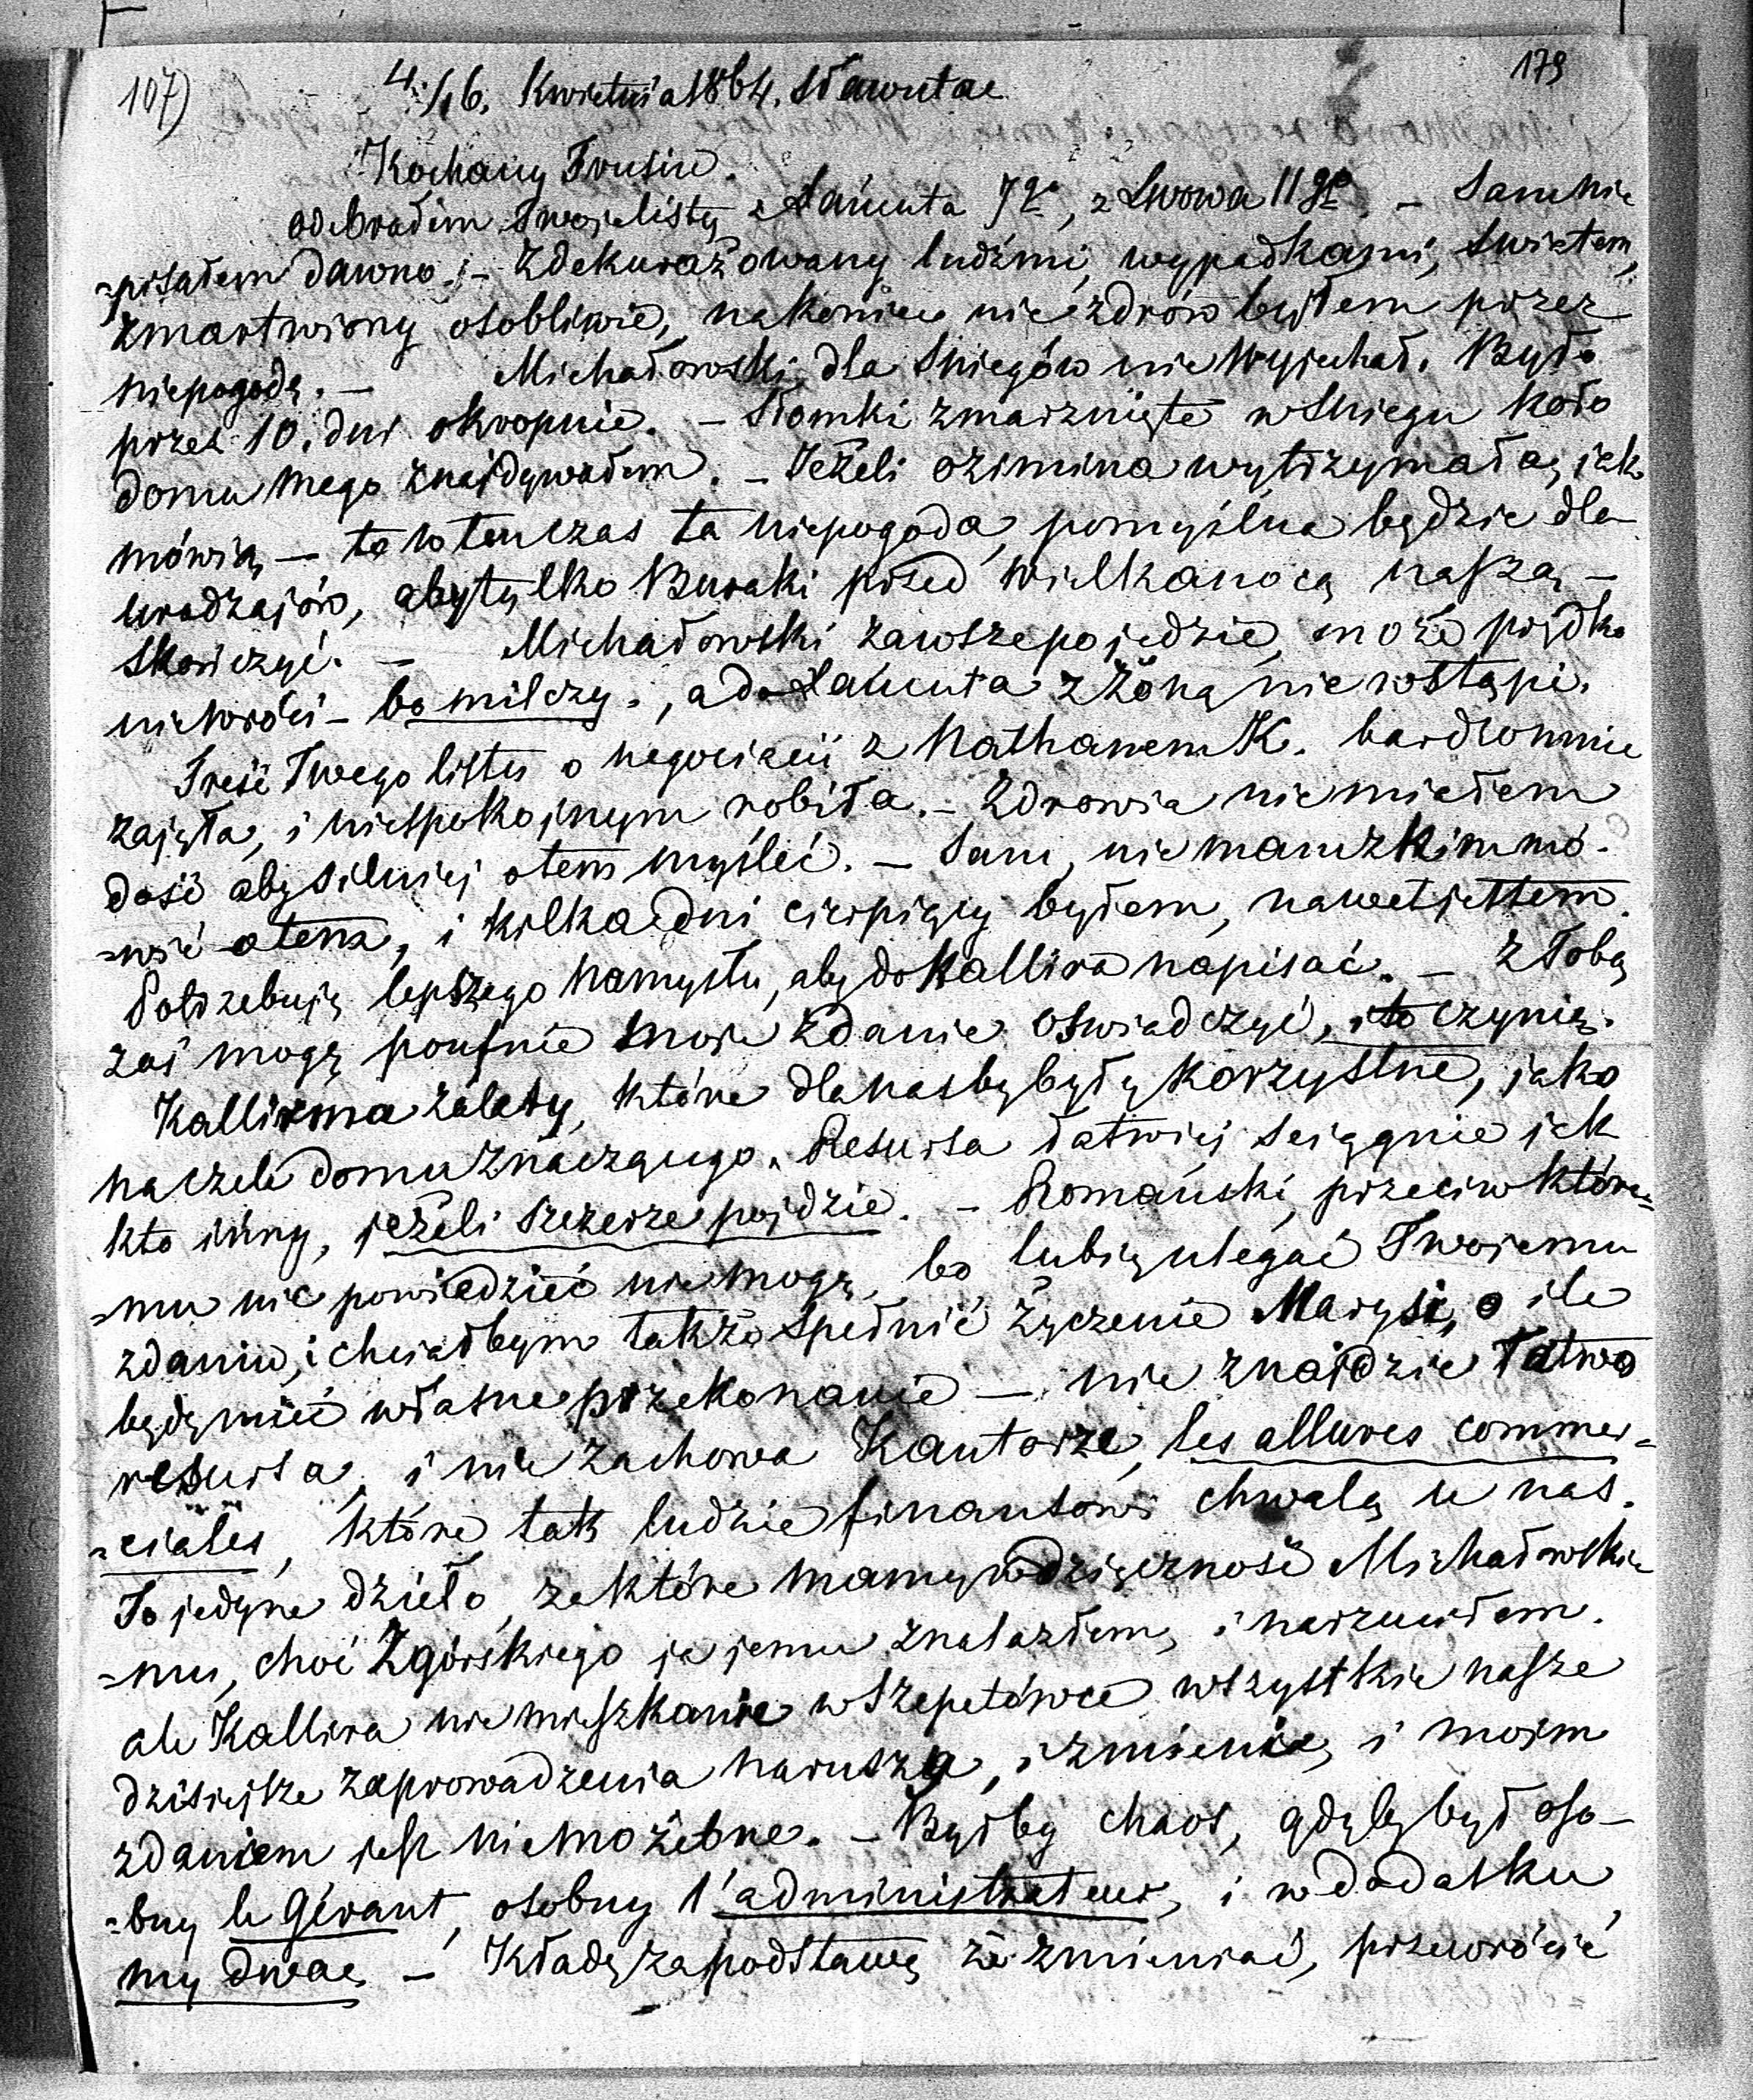 107)
179
4./16. Kwietnia 1864. Sławuta
Kochany Frusiu.
odebrałem Twoje listy z Łańcuta 7go, z Lwowa 11go. – Sam nie
-pisałem dawno. – Zdekurażowany ludźmi, wypadkami, światem,
zmartwiony osobliwie, nakoniec nie zdrów byłem przez
niepogodę. – Michałowski, dla śniegów nie wyjechał. Było
przez 10. dni okropnie. – Słomki zmarznięte w śniegu koło
domu mego znajdywałem. – Jeżeli ozimina wytrzymała, jak
mówią – to wtenczas ta niepogoda, pomyślna będzie dla
urodzajów, aby tylko Buraki przed wielkanocą naszą –
skończyć. – Michałowski zawsze pojedzie, może prędko
nie wróci – bo milczy. , a do Łańcuta z żoną nie wstąpi.
Treść Twego listu o negociacii z Nathanem K. bardzo mnie
zajęła, i niespokojnym robiła. – Zdrowia nie miałem
dość aby silniej o tem myśleć. – Sam, nie mam z kim mó-
-wić o tem, i kilka dni cierpiący byłem, nawet jestem.
Potrzebuję lepszego namysłu, aby do Kallira napisać. – Z Tobą
zaś mogę poufnie moje zdanie oświadczyć, i to czynię.
Kallir ma zalety, które dla nas by były korzystne, jako
na czele domu znaczącego. Resursa łatwiej ściągnie jak
kto inny, jeżeli szczerze pojdzie. – Romański, przeciw które-
-mu nic powiedzieć nie mogę, bo lubię ulegać Twojemu
zdaniu, i chciałbym także spełnić życzenie Marysi, o ile
będę mieć własne przekonanie – nie znajdzie łatwo
resursa, i nie zachowa Kantorze, les allures commer-
-ciales, które tak ludzie finansowi chwalą u nas.
To jedyne dzieło, za które mamy wdzięczność Michałowskie
-mu, choć Zgórskiego ja jemu znalazłem, i narzuciłem.
ale Kallira nie mieszkanie w Szepetówce wszystkie nasze
dzisiejsze zaprowadzenia narusza, i zmienia, i mojm
zdaniem jest niemożebne. – Byłby chaos, gdyby był oso-
-bny le Gérant, osobny l'administrateur, i w dodatku,
my dwaj. – Kładę za podstawę że zmieniać, przewrócić